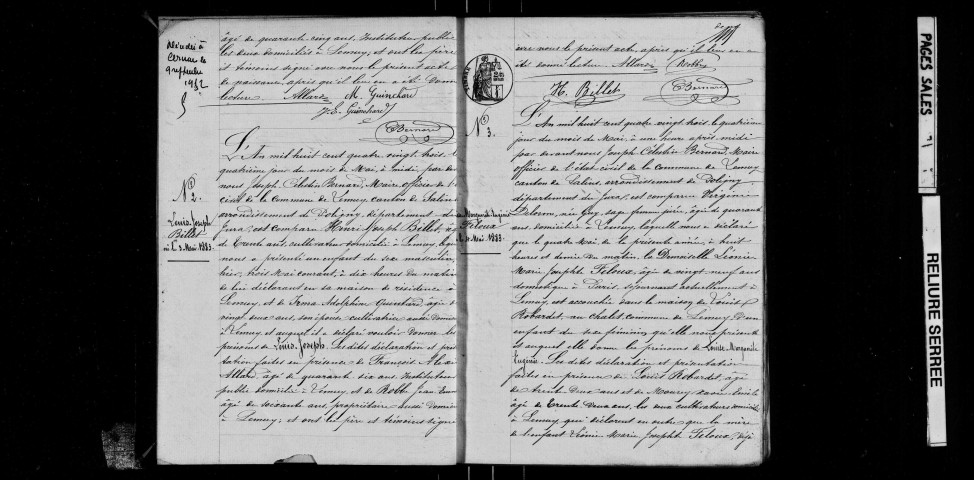 âgé de quarante cinq ans, Instituteur public
les deux domiciliés à Lemuy, et ont les père
et témoins signé avec nous le présent acte
de naissance, après qu'il leur en a été donné
lecture. Allard M. Guinchard
J. E. Guinchard
CBernard
Décédé à
Cernans le
9 septembre
1962
N° 2.
Louis Joseph
Billet
né le 3 Mai 1883.
L'An mil huit cent quatre vingt trois, le
quatrième jour du mois de Mai, à midi, par devant
nous Joseph Célestin Bernard, Maire, officier de l'état
civil de la Commune de Lemuy, canton de Salins
arrondissement de Poligny, département du
Jura, est comparu Henri Joseph Billet, âgé
de trente ans, cultivateur domicilié à Lemuy, lequel
nous a présenté un enfant du sexe masculin, né
hier, trois Mai courant, à dix heures du matin
de lui déclarant en sa maison de résidence à
Lemuy, et de Irma Adolphine Guinchard, âgée de
vingt deux ans, son épouse, cultivatrice aussi domiciliée
à Lemuy et auquel il a déclaré vouloir donner les
prénoms de Louis Joseph. Les dites déclaration et présen
tation faites en présence de François
Allard âgé de quarante six ans, Instituteur
public domicilié à Lemuy et de Bobb Jean
âgé de soixante ans, propriétaire aussi domicilié
à Lemuy; et ont les père et témoins signé
avec nous le présent acte, après qu'il leur en a
été donné lecture. Allard Bobb
H. Billet CBernard
N° 3.
Louise Morgande Eugénie
Feloux
née le 4 Mai 1883.
L'An mil huit cent quatre vingt trois, le quatrième
jour du mois de Mai, à une heure après midi
par devant nous Joseph Célestin Bernard, Maire
officier de l'état civil de la commune de Lemuy
canton de Salins, arrondissement de Poligny
département du Jura, est comparue Virginie
Delorme, sage femme, âgée de quarante
ans, domiciliée à Lemuy, laquelle nous a déclaré
que le quatre Mai de la présente année, à huit
heures et demie du matin, la Demoiselle Léonie
Marie Josephte Feloux, âgée de vingt neuf ans
domestique à Paris, séjournant actuellement à
Lemuy, est accouchée dans la maison de Louis
Robardet, au chalet, commune de Lemuy d'un
enfant du sexe féminin qu'elle nous présente
et auquel elle donne les prénoms de Louise Morgande
Eugénie. Les dites déclaration et présentation
faites en présence de Louis Robardet, âgé
de trente deux ans et de Mourey
âgé de trente deux ans, les deux cultivateurs domiciliés
à Lemuy qui déclarent en outre que la mère
de l'enfant Léonie Marie Josephte Feloux, déjà
PAGES SALES
RELIURE SERREE